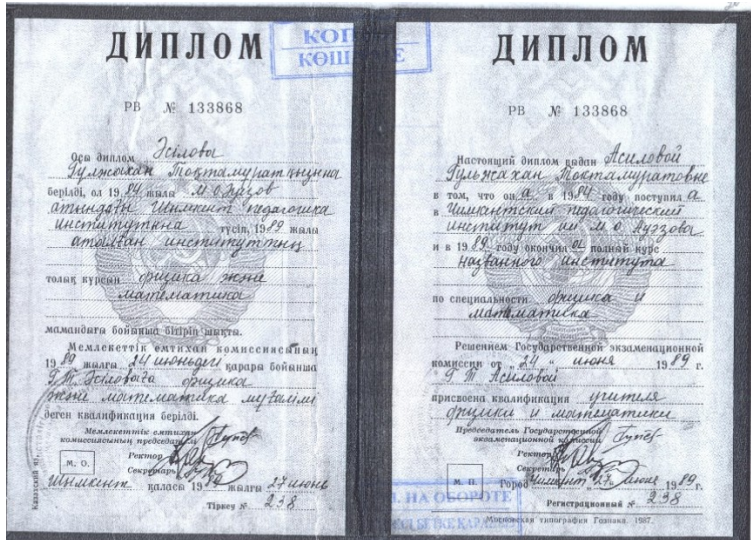 ДИПЛОМ
РВ № 133868
Осы диплом Әсілова
Гүлжахан Тоқтамуратқызына
берілді, ол 1984 жылы М.О.Әуезов
атындағы Шымкент педагогика
институтына түсіп, 1989 жылы
аталған институттың
толық курсын физика және
математика
мамандығы бойынша бітіріп шықты.
Мемлекеттік емтихан комиссиясының
1989 жылғы 24 июньдегі қарары бойынша
Г.Т. Әсіловаға физика
және математика мұғалімі
деген квалификация берілді.
Мемлекеттік емтихан
комиссиясының председателі
Ректор
Секретарь
М. О.
Шымкент қаласы 1989 жылғы 27 июнь
Тіркеу № 238
КОП
КӨШІ Е
ДИПЛОМ
РВ № 133868
Настоящий диплом выдан Асиловой
Гульжахан Токтамуратовне
в том, что она в 1984 году поступила
в Чимкентский педагогический
институт им М.О. Ауэзова
и в 1989 году окончила полный курс
названного института
по специальности физика и
математика
Решением Государственной экзаменационной
комиссии от „24“ июня 1989 г.
Г Т Асиловой
присвоена квалификация учителя
физики и математики
Председатель Государственной
экзаменационной комиссии
Ректор
Секретарь
М. П.
Город Чимкент „27“ июня 1989 г.
Регистрационный № 238
НА ОБОРОТЕ
Московская типография Гознака. 1987.